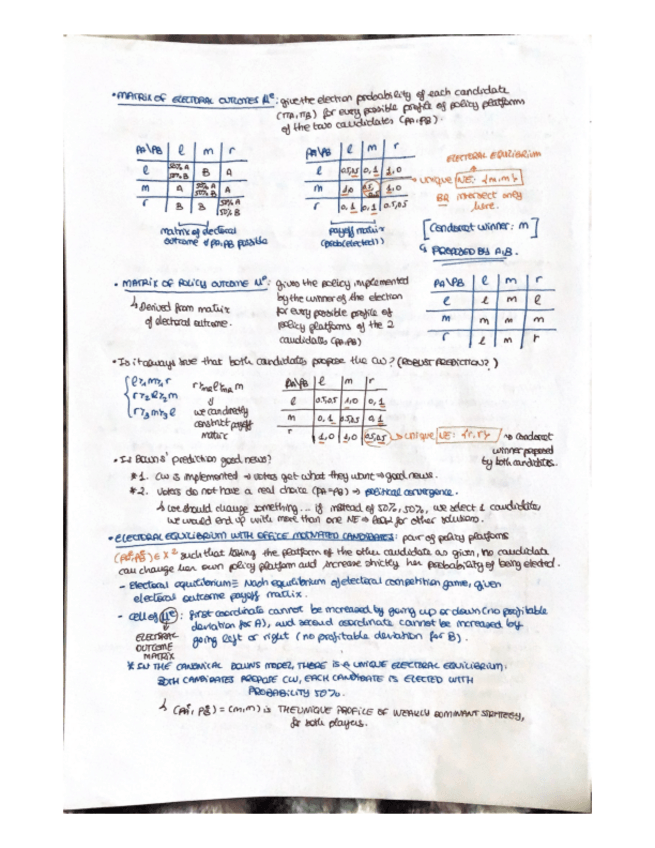 • MATRIX OF ELECTORAL OUTCOMES Mᵉ: give the election probability of each candidate
(πA, πB) for every possible profile of policy platforms
of the two candidates (PA, PB).
PA\PB | l | m | r
l | 50% A 50% B | B | A
m | A | 50% A 50% B | A
r | B | B | 50% A 50% B
matrix of electoral
outcome ∀ PA, PB possible
PA\PB | l | m | r
l | 0.5,0.5 | 0,1 | 1,0
m | 1,0 | 0.5, 0.5 | 1,0
r | 0,1 | 0,1 | 0.5,0.5
payoff matrix
(prob(elected))
ELECTORAL EQUILIBRIUM
→ unique NE: {m,m}
BR intersect only
here.
[Condorcet winner: m]
↳ PROPOSED BY A,B.
• MATRIX OF POLICY OUTCOME Mᵖ: gives the policy implemented
by the winner of the election
for every possible profile of
policy platforms of the 2
candidates (PA, PB)
↳ Derived from matrix
of electoral outcome.
PA\PB | l | m | r
l | l | m | l
m | m | m | m
r | l | m | r
• Is it always true that both candidates propose the CW? (ROBUST PREDICTION?)
l ≻1 m ≻1 r
r ≻2 l ≻2 m
r ≻3 m ≻3 l
r ≻ma l ≻ma m
⇓
we can directly
construct payoff
matrix
PA\PB | l | m | r
l | 0.5,0.5 | 1,0 | 0,1
m | 0,1 | 0.5,0.5 | 0,1
r | 1,0 | 1,0 | 0.5,0.5
→ unique NE: {r,r} → Condorcet
winner proposed
by both candidates.
• Is Downs' prediction good news?
*1. CW is implemented → voters get what they want → good news.
*2. Voters do not have a real choice (PA=PB) → political convergence.
↳ we should change something... if instead of 50%, 50%, we select 1 candidate,
we would end up with more than one NE → for other solutions.
• ELECTORAL EQUILIBRIUM WITH OFFICE MOTIVATED CANDIDATES: pair of policy platforms
(PA*, PB*) ∈ X² such that taking the platform of the other candidate as given, no candidate
can change her own policy platform and increase strictly her probability of being elected.
– Electoral equilibrium ≡ Nash equilibrium of electoral competition game, given
electoral outcome payoff matrix.
– cell of Mᵉ: first coordinate cannot be increased by going up or down (no profitable
deviation for A), and second coordinate cannot be increased by
going left or right (no profitable deviation for B).
ELECTORAL
OUTCOME
MATRIX
* IN THE CANONICAL DOWNS MODEL, THERE IS A UNIQUE ELECTORAL EQUILIBRIUM:
BOTH CANDIDATES PROPOSE CW, EACH CANDIDATE IS ELECTED WITH
PROBABILITY 50%.
↳ (PA*, PB*) = (m,m) IS THE UNIQUE PROFILE OF WEAKLY DOMINANT STRATEGY,
for both players.